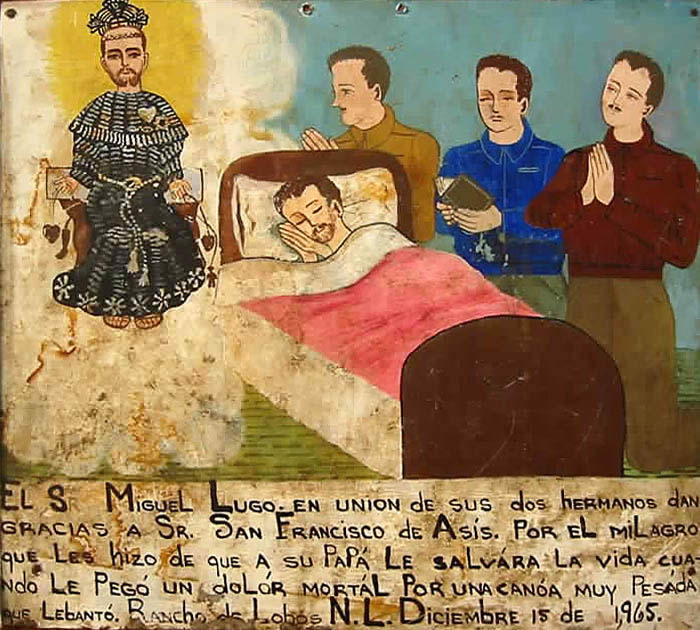 EL Sr MIGUEL LUGO. EN UNION DE SUS DOS HERMANOS DAN
GRACIAS A SR. SAN FRANCISCO DE ASÍS. POR EL MILAGRO
QUE LES HIZO DE QUE A SU PAPÁ LE SALVÁRA LA VIDA CUA-
NDO LE PEGÓ UN DOLÓR MORTÁL POR UNA CANÓA MUY PESADA
QUE LEBANTÓ. RANCHO de LOBOS N.L. DICIEMBRE 15 DE 1,965.